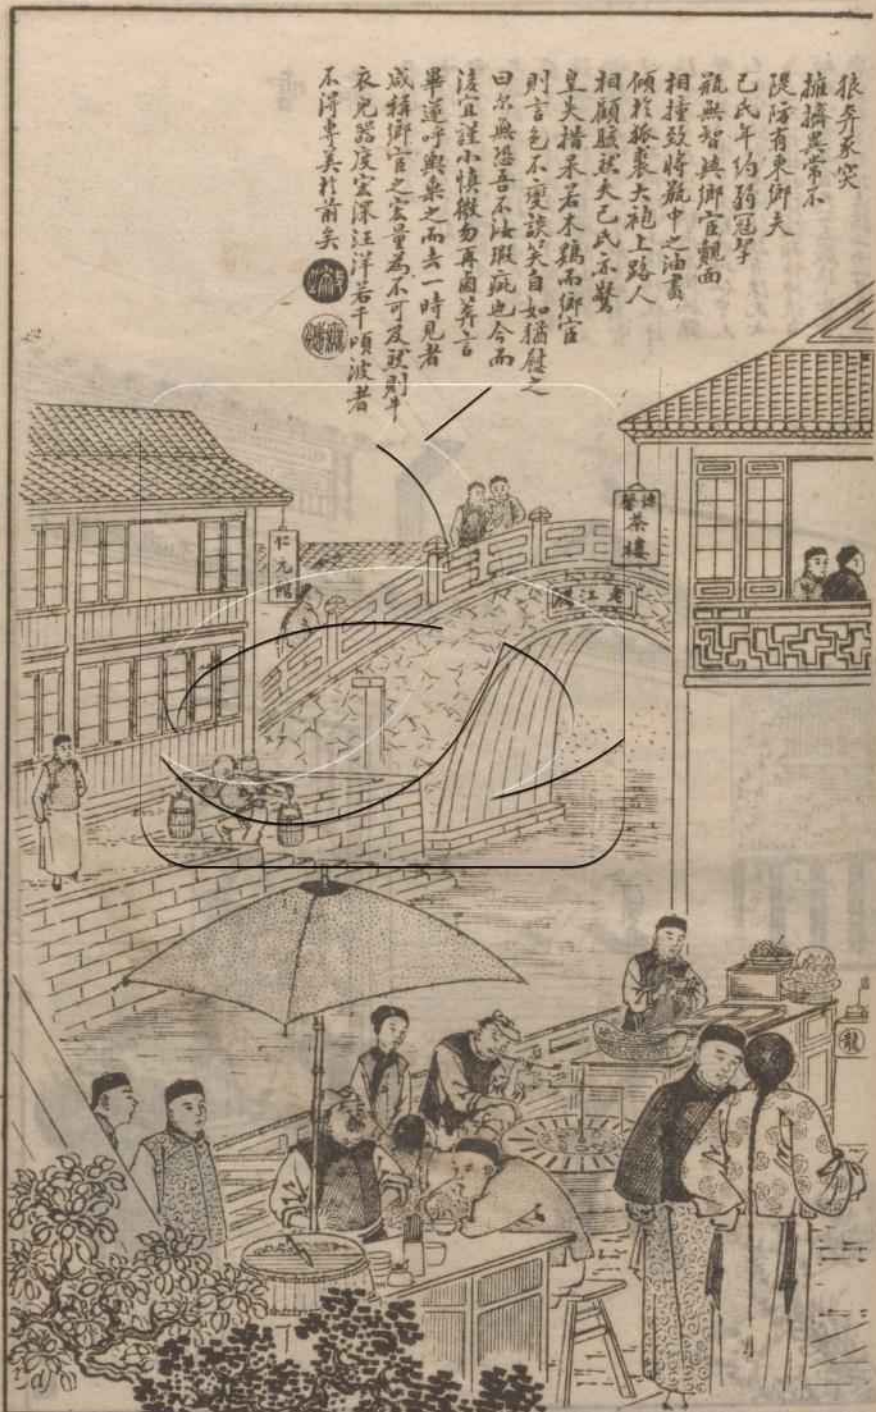 狼奔豕突
擁擠異常不
隄防有東鄉夫
己氏年約弱冠挈
瓶無智與鄉官覿面
相撞致將瓶中之油盡
傾於狐裘大袍上路人
相顧駭然夫己氏亦驚
皇失措呆若木鷄而鄉官
則言色不變談笑自如猶慰之
曰尔無恐吾不汝瑕疵也今而
後宜謹小慎微勿再鹵莽言
畢遂呼輿乘之而去一時見者
咸稱鄉官之宏量為不可及然則牛
衣兒器度宏深汪洋若千頃波者
不得專美於前矣
茶樓
老江
仁元館
龍